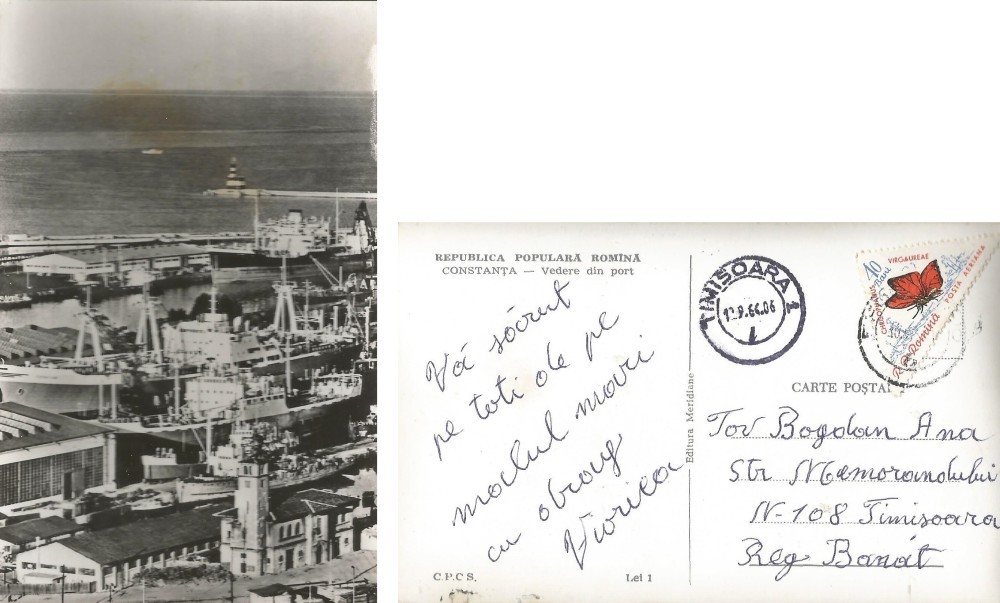 REPUBLICA POPULARĂ ROMÎNĂ
CONSTANȚA — Vedere din port
Vă sócrut
pe toti de pe
moclul mori
cu drag
Viorica
C.P.C S.
Lei 1
Editura Meridiane
TIMIȘOARA 1
40 Bani
VIRGAUREAE
POSTA AERIANA
R.P. Romina
CARTE POȘTA
Tov Bogdan Ana
Str Memorandului
N-108 Timisoara
Reg Banát